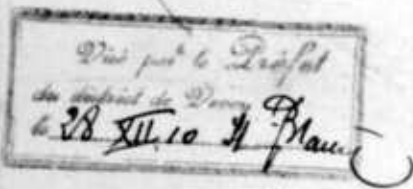 Visé par le Préfet
du district de Vevey
le 28 XII 10